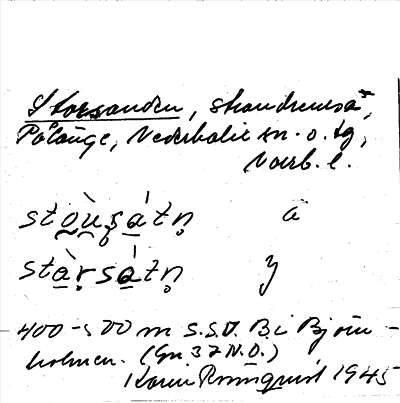 Storsanden, strandremsa,
Pålänge, Nederkalix sn. o. tg,
Norrb. l.
stòu̯ṣátṇ ä
stàrsátṇ y
400-500 m S.S.V. Bi Björn-
holmen. (Gn 37 N.O.)
Karin Rönnquist 1945